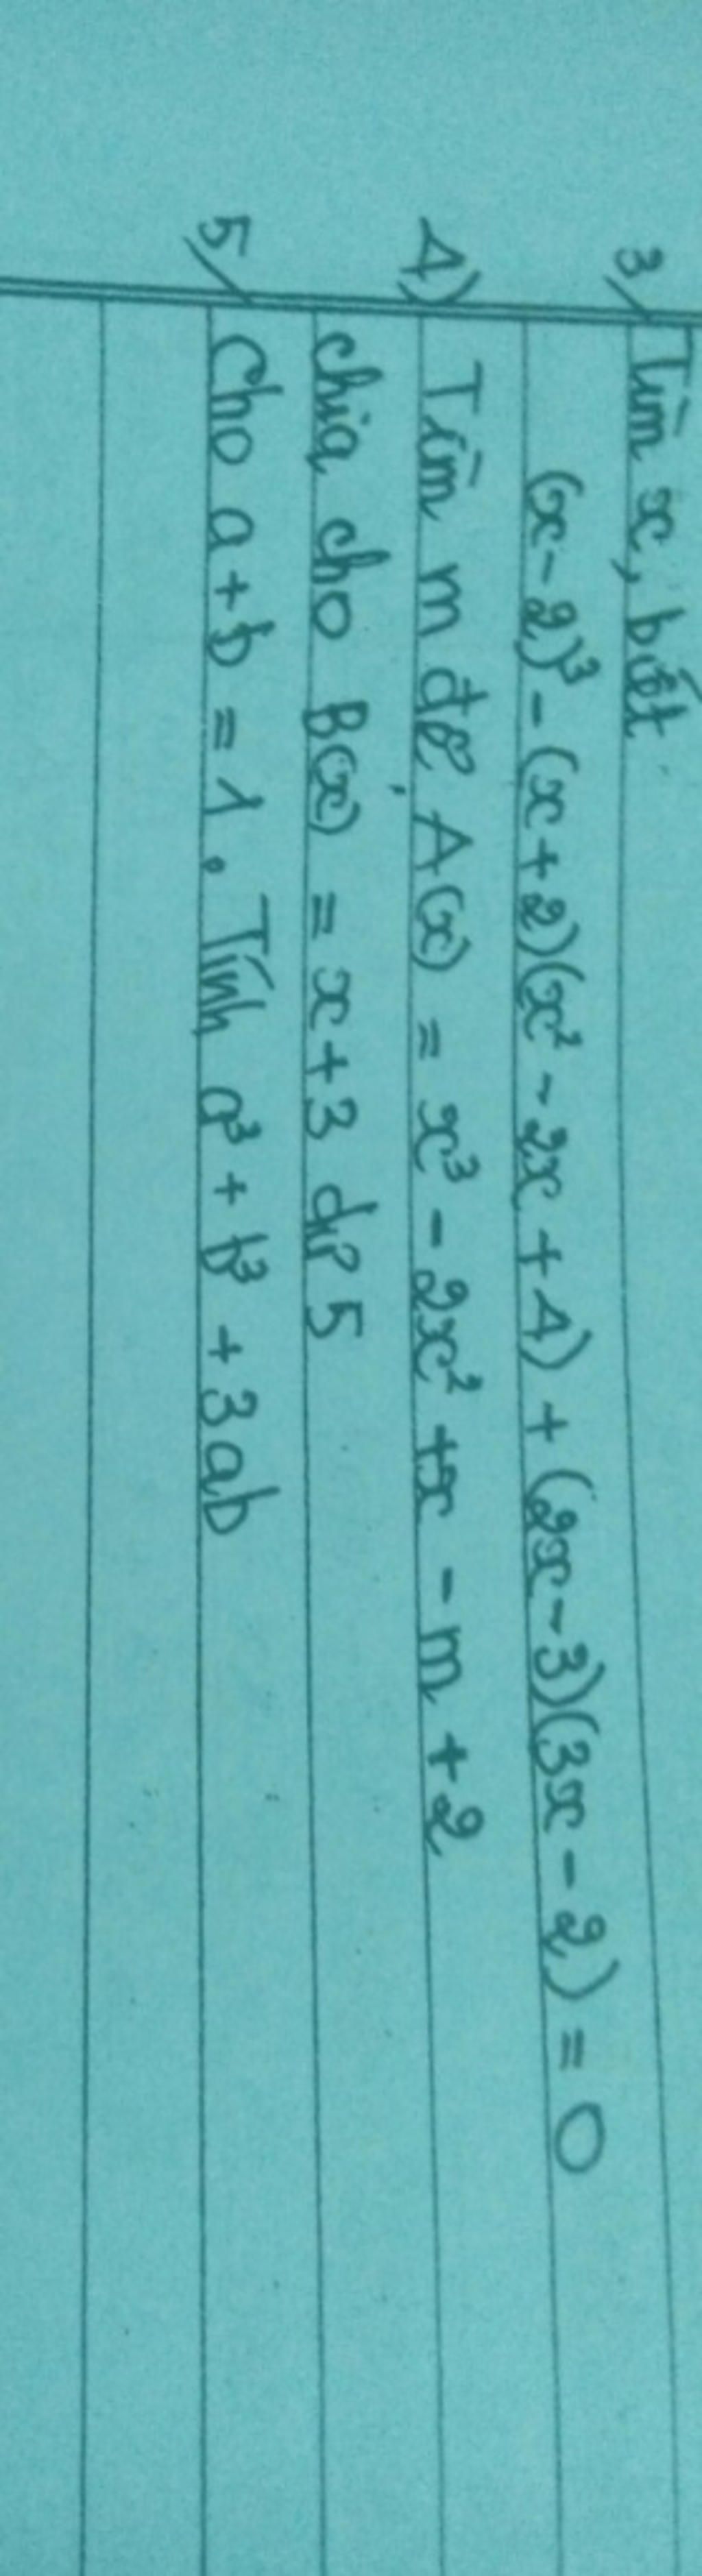 3/ Tìm x, biết
(x-2)³ - (x+2)(x² - 2x + 4) + (2x-3)(3x-2) = 0
4) Tìm m để A(x) = x³ - 2x² + x - m + 2
chia cho B(x) = x + 3 dư 5
5/ Cho a + b = 1. Tính a³ + b³ + 3ab